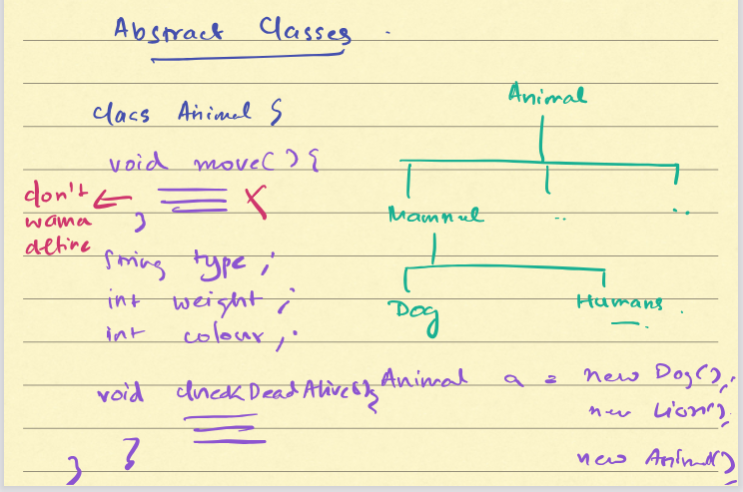 Abstract Classes.
class Animal {
void move() {
don't wanna define
}
String type;
int weight;
int colour;
void checkDeadAlive() {
}
}
Animal
Mammal
..
..
Dog
Humans.
Animal a = new Dog();
new Lion();
new Animal();